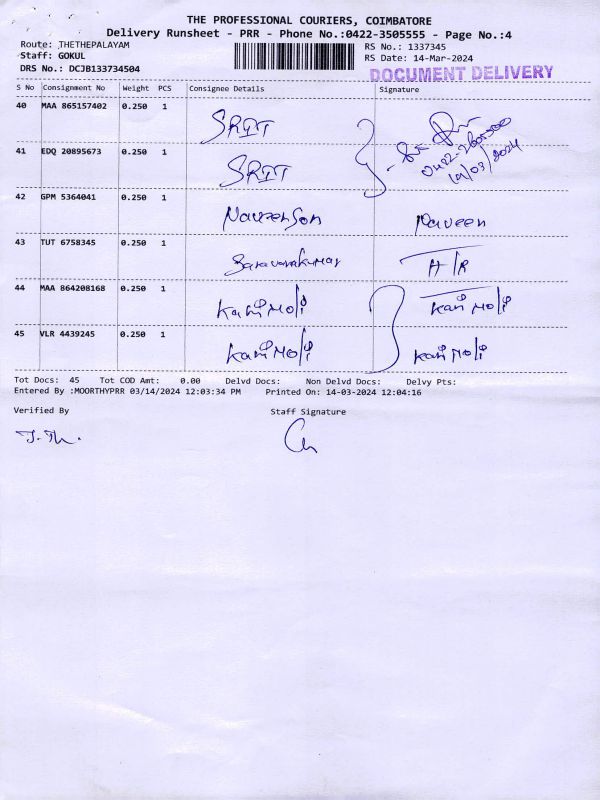 THE PROFESSIONAL COURIERS, COIMBATORE
Delivery Runsheet - PRR - Phone No.:0422-3505555 - Page No.:4
Route: THETHEPALAYAM RS No.: 1337345
Staff: GOKUL RS Date: 14-Mar-2024
DRS No.: DCJB133734504 DOCUMENT DELIVERY
S No Consignment No Weight PCS Consignee Details Signature
40 MAA 865157402 0.250 1 SRIT
41 EDQ 20895673 0.250 1 SRIT
42 GPM 5364041 0.250 1 Naveen
43 TUT 6758345 0.250 1 Saravanakumar A/R
44 MAA 864208168 0.250 1 KaniMoli KaniMoli
45 VLR 4439245 0.250 1 KaniMoli KaniMoli
Tot Docs: 45 Tot COD Amt: 0.00 Delvd Docs: Non Delvd Docs: Delvy Pts:
Entered By :MOORTHYPRR 03/14/2024 12:03:34 PM Printed On: 14-03-2024 12:04:16
Verified By Staff Signature